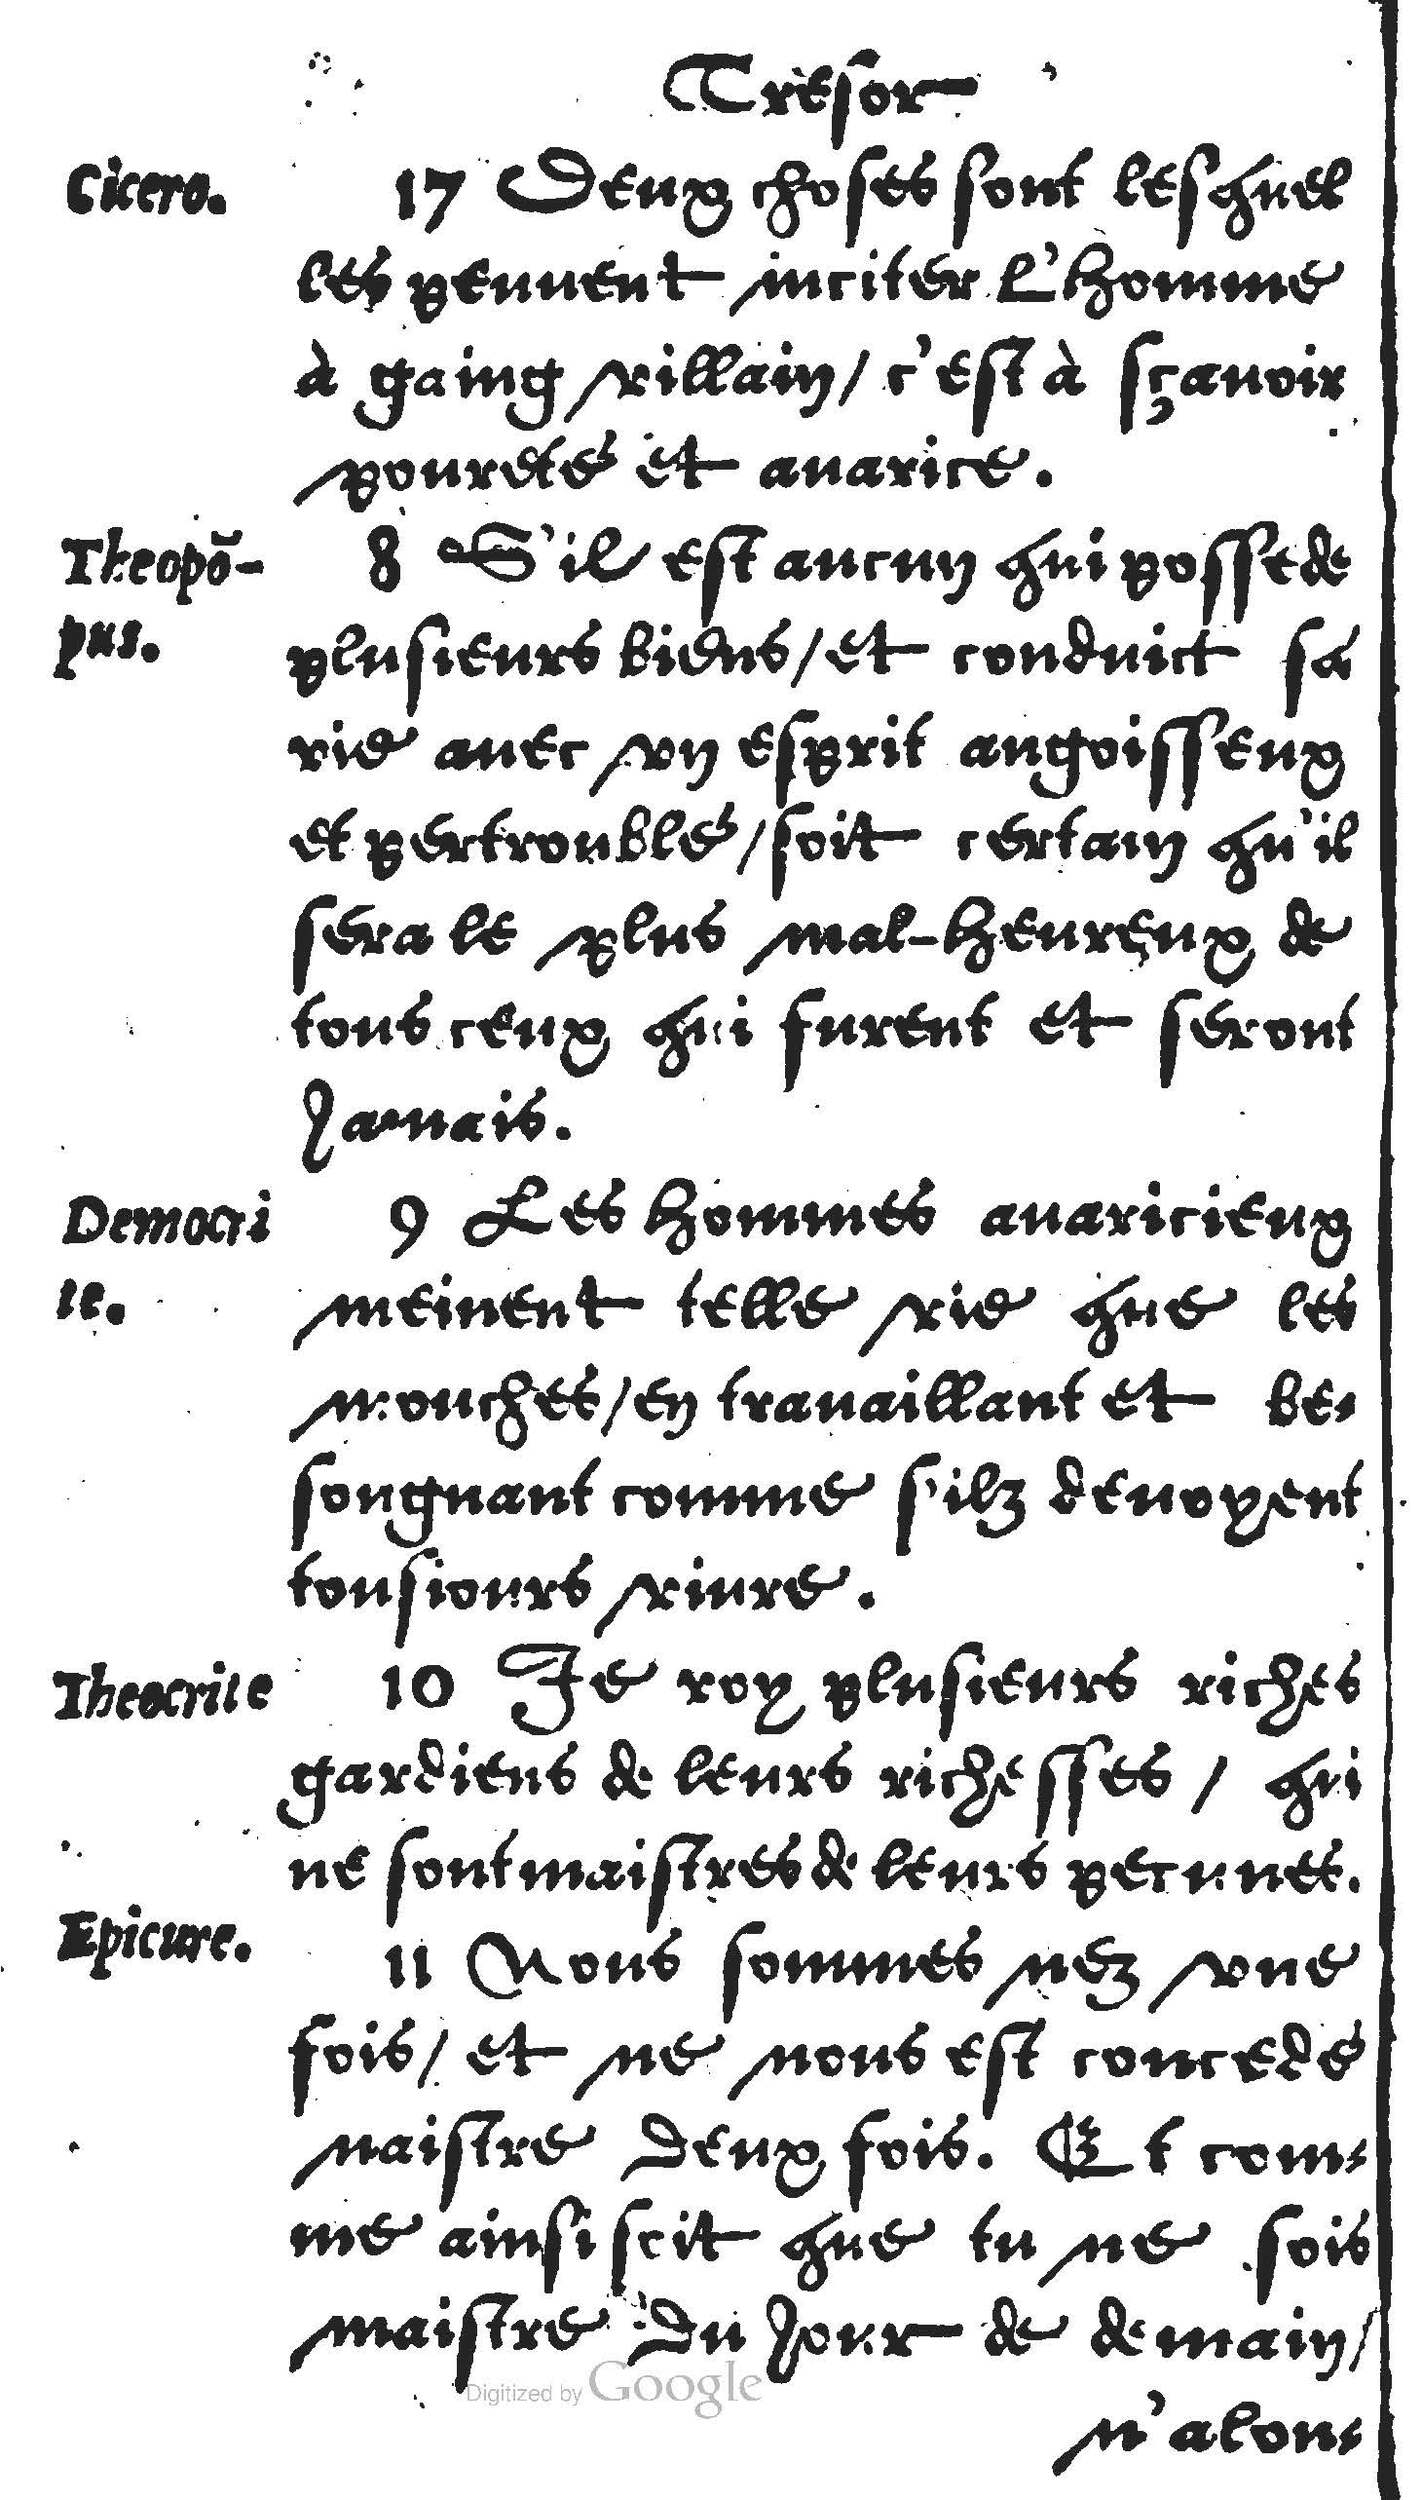 Trèsor
Cicero.
17 Deux choses sont lesquel
les peuuent inciter L'homme
à gaing villain/ c'est à sçauoir
poureté et auarice.
Theopõ-
pus.
8 S'il est aucun qui possede
plusieurs biens/ et conduict sa
vie auec vn esprit angoisseux
et pertroublé/ soit certain qu'il
sera le plus mal-heureux de
tous ceux qui furent et seront
Jamais.
Democri
te.
9 Les hommes auaricieux
meinent telle vie que les
mouches/ en trauaillant et be-
songnant comme s'ilz deuoyent
tousiours viure.
Theocrite
10 Je voy plusieurs riches
gardiens de leurs richesses / qui
ne sont maistres de leurs pecunes.
Epicure.
11 Nous sommes nez vne
fois/ et ne nous est concedé
naistre deux fois. Et com-
me ainsi soit que tu ne sois
maistre du Jour de demain/
n'alon-
Digitized by Google